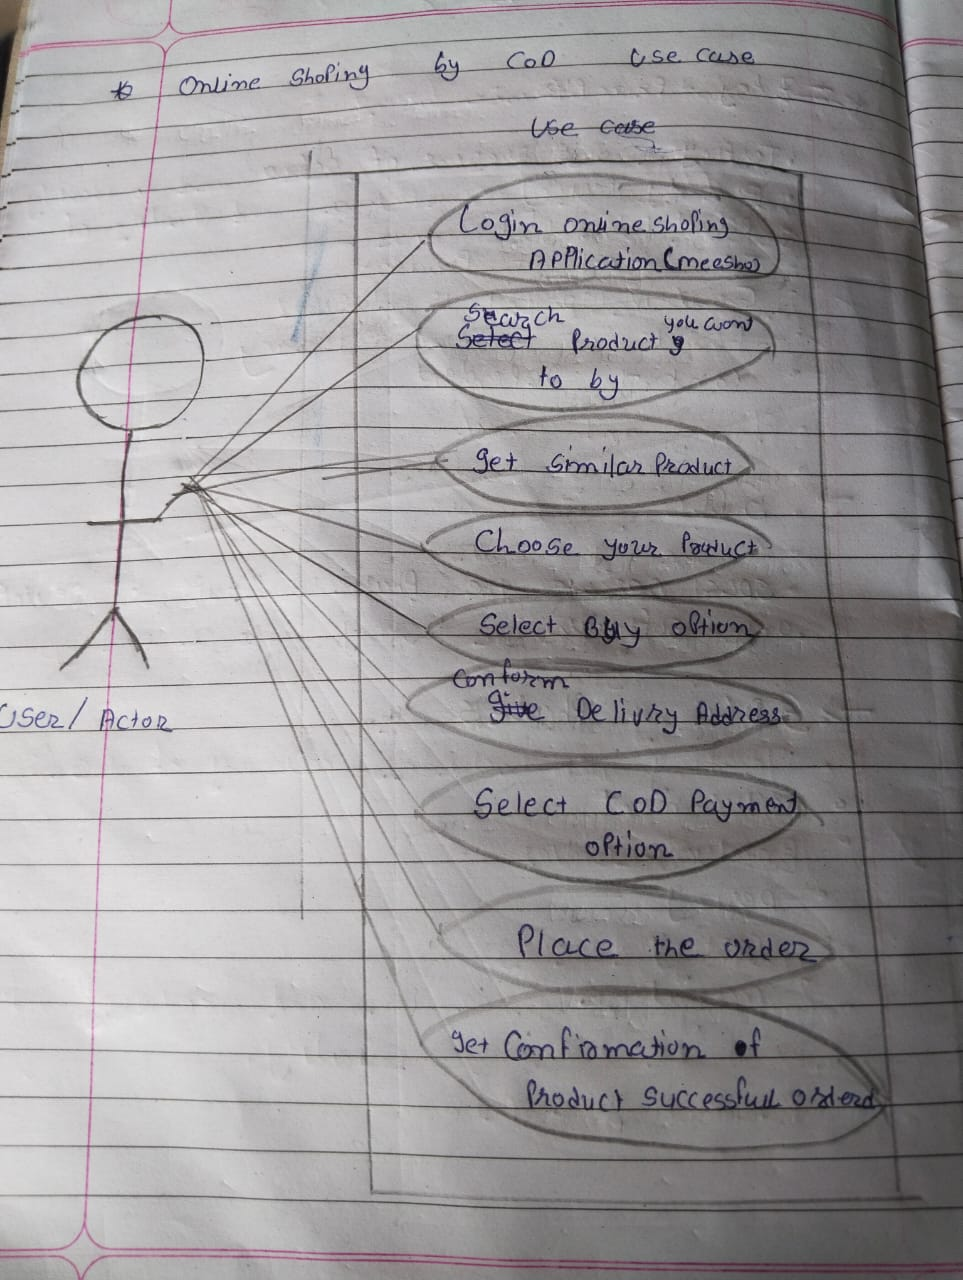 * Online Shoping by COD Use case
Use case
Login online shoping
Application (meesho)
Search you wont
Select Product
to by
get similar Product
Choose your Product
Select Buy option
Conform
give Delivry Address
Select COD Payment
option
Place the order
get Confirmation of
Product Successfull orderd
User/ Actor